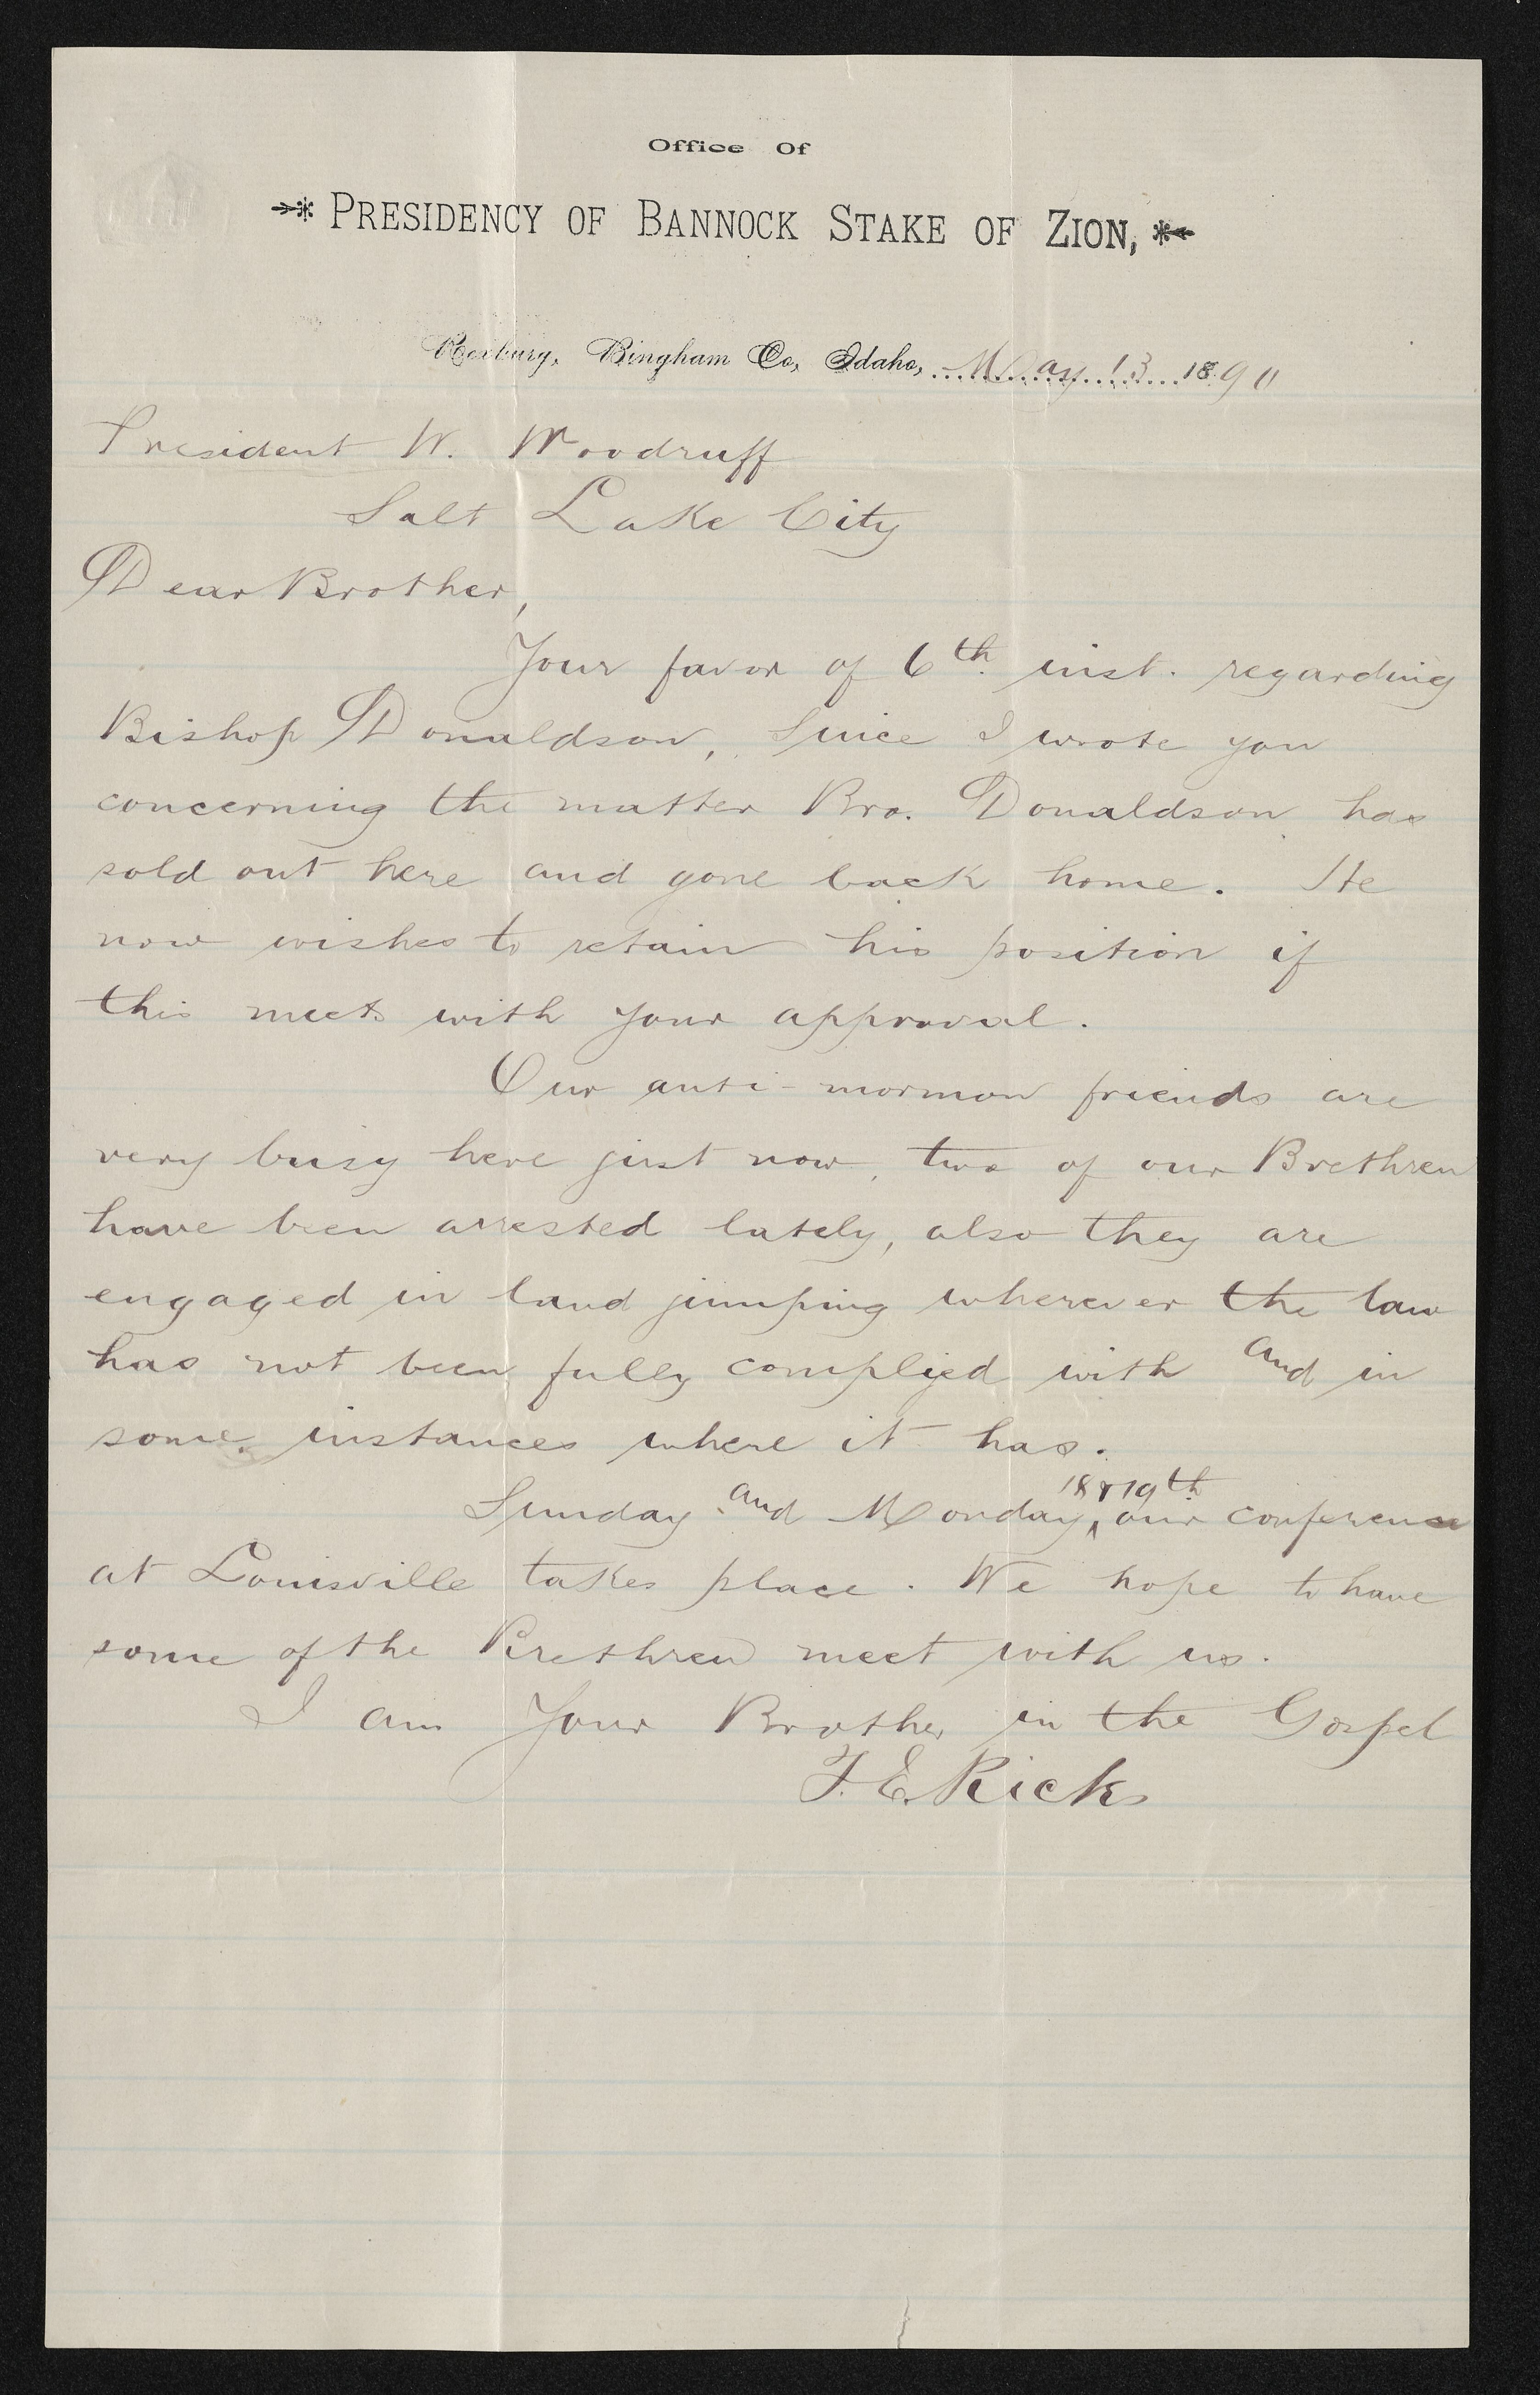 Office Of
PRESIDENCY OF BANNOCK STAKE OF ZION,
Rexburg, Bingham Co, Idaho, May 13 1890
President W. Woodruff
Salt Lake City
Dear Brother,
Your favor of 6th. inst. regarding
Bishop Donaldson, Since I wrote you
concerning the matter Bro. Donaldson has
sold out here and gone back home. He
now wishes to retain his position if
this meets with your approval.
Our anti-mormon friends are
very busy here just now, two of our Brethren
have been arrested lately, also they are
engaged in land jumping wherever the law
has not been fully complied with and in
some instances where it has.
Sunday and Monday, 18 & 19th our conference
at Louisville takes place. We hope to have
some of the Brethren meet with us.
I am Your Brother in the Gospel
T. E. Ricks